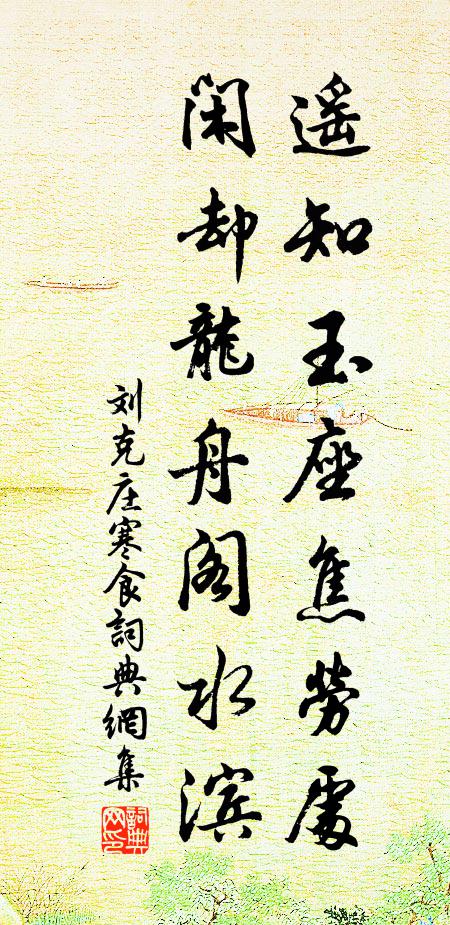 遥知玉座焦勞處
闲却龍舟阁水滨
刘克庄寒食詞典網集
詞典网印